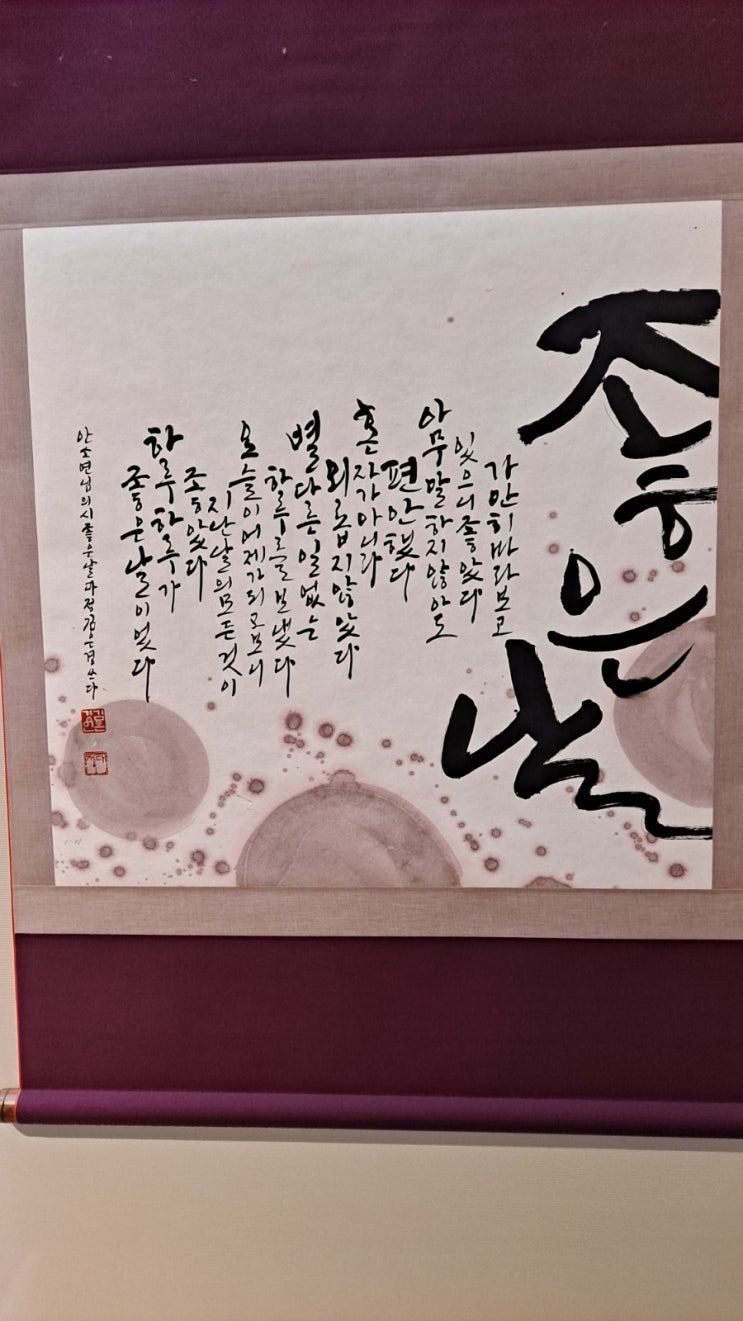 좋은날
가만히바라보고
있으니좋았다
아무말하지않아도
편안했다
혼자가아니라
외롭지않았다
별다른일없는
하루를보냈다
오늘이어제가되고보니
지난날의모든것이
좋았다
하루하루가
좋은날이었다
안소연님의시좋은날 쓰다